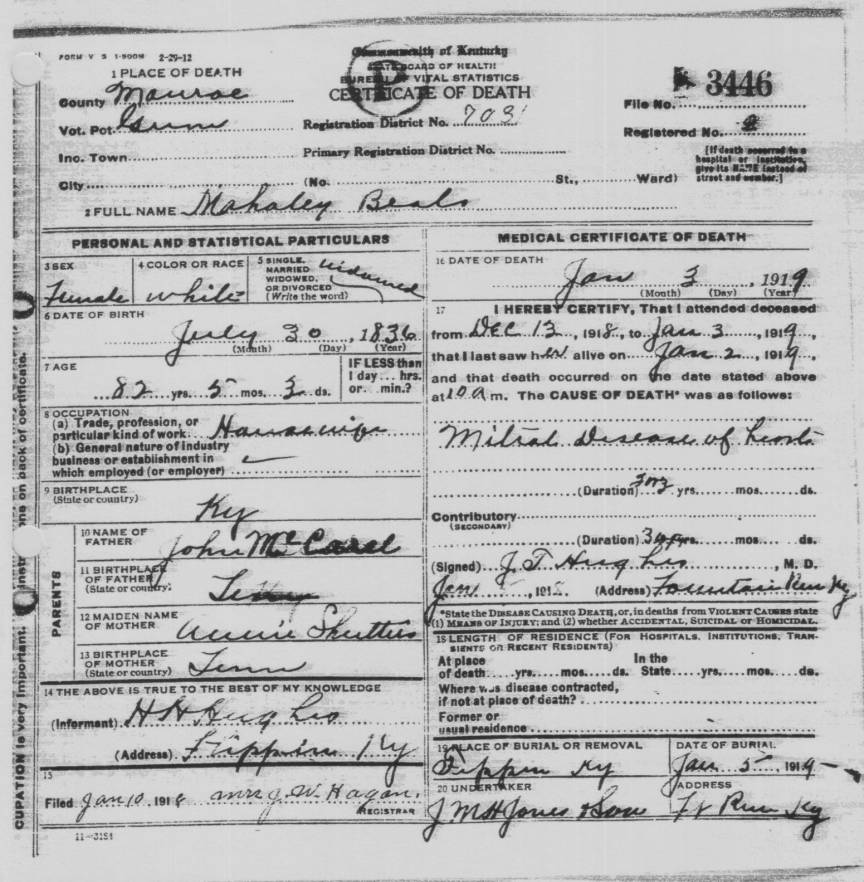 FORM V S 1-500M 2-29-12
Commonwealth of Kentucky
STATE BOARD OF HEALTH
BUREAU OF VITAL STATISTICS
CERTIFICATE OF DEATH
1 PLACE OF DEATH
County Monroe
Vot. Pct. Gum
Inc. Town
City (No. St., Ward)
Registration District No. 703
Primary Registration District No.
File No. 3446
Registered No. 2
[If death occurred to a
hospital or institution,
give its NAME instead of
street and number.]
2 FULL NAME Mahaley Beals
PERSONAL AND STATISTICAL PARTICULARS
3 SEX
Female
4 COLOR OR RACE
White
5 SINGLE, MARRIED WIDOWED, OR DIVORCED (Write the word)
Widowed
6 DATE OF BIRTH
July 30, 1836
(Month) (Day) (Year)
7 AGE
82 yrs. 5 mos. 3 ds.
IF LESS than
1 day... hrs.
or... min.?
8 OCCUPATION
(a) Trade, profession, or
particular kind of work Housewife
(b) General nature of industry
business or establishment in
which employed (or employer)
9 BIRTHPLACE
(State or country)
Ky
PARENTS
10 NAME OF FATHER
John
11 BIRTHPLACE OF FATHER
(State or country)
Tenn
12 MAIDEN NAME OF MOTHER
Annie
13 BIRTHPLACE OF MOTHER
(State or country)
Tenn
14 THE ABOVE IS TRUE TO THE BEST OF MY KNOWLEDGE
(Informant) H H Hughes
(Address) Flippin Ky
15
Filed Jan 10 1918 Mrs J. W. Hagan.
REGISTRAR
11-3184
MEDICAL CERTIFICATE OF DEATH
16 DATE OF DEATH
Jan 3, 1919
(Month) (Day) (Year)
17 I HEREBY CERTIFY, That I attended deceased
from Dec 13, 1918, to Jan 3, 1919,
that I last saw her alive on Jan 2, 1919,
and that death occurred on the date stated above
at 10 a m. The CAUSE OF DEATH* was as follows:
Mitral Disease of heart
(Duration) yrs. mos. ds.
Contributory
(SECONDARY)
(Duration) yrs. mos. ds.
(Signed) J. T. Hughes, M. D.
Jan, 191 (Address) Fountain Run Ky
*State the DISEASE CAUSING DEATH, or, in deaths from VIOLENT CAUSES state
(1) MEANS OF INJURY; and (2) whether ACCIDENTAL, SUICIDAL OR HOMICIDAL.
18 LENGTH OF RESIDENCE (FOR HOSPITALS, INSTITUTIONS, TRAN-
SIENTS OR RECENT RESIDENTS)
At place In the
of death yrs. mos. ds. State yrs. mos. ds.
Where was disease contracted,
if not at place of death?
Former or
usual residence
19 PLACE OF BURIAL OR REMOVAL
Flippin Ky
DATE OF BURIAL
Jan 5, 1919
20 UNDERTAKER
J M H Jones & Son
ADDRESS
Ft Run Ky
CUPATION is very important.
one on back of certificate.